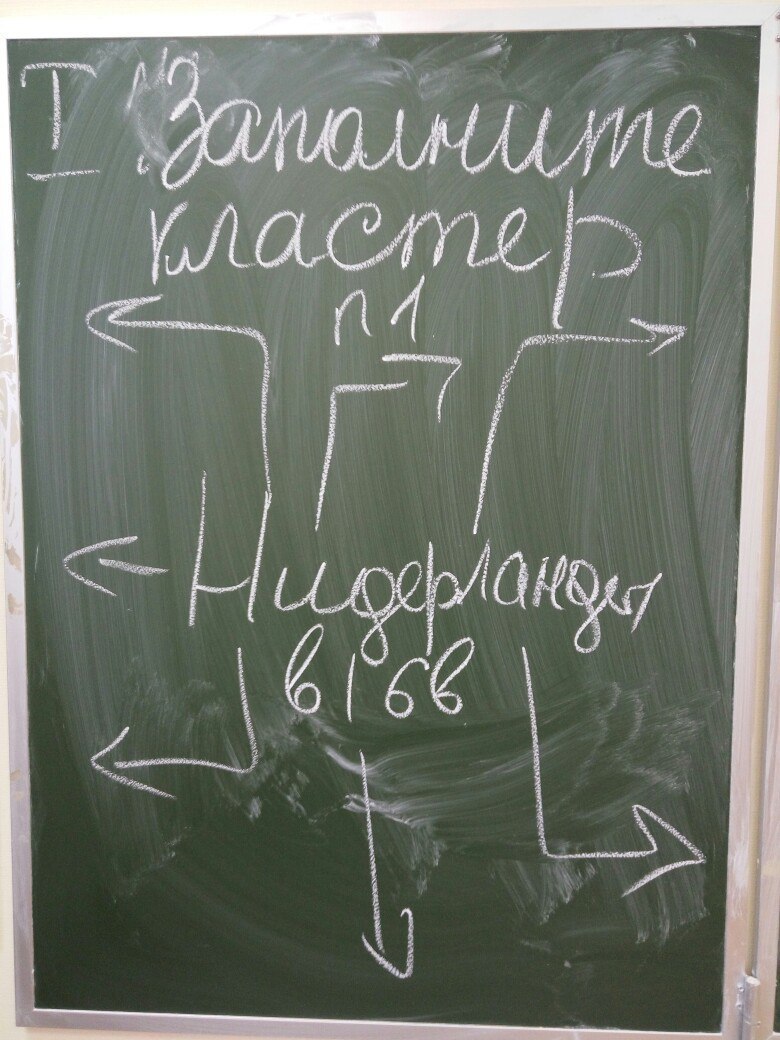 I Заполните
кластер
п 1
Нидерланды
в 16в